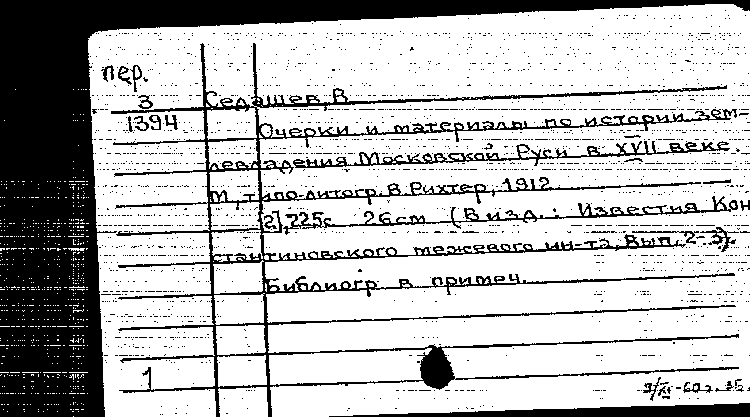 пер.
3
1394
Седашев, В
Очерки и материалы по истории зем-
левладения Московской Руси в XVII веке.
М, типо-литогр. В. Рихтер, 1912
[2], 225с 26см (В изд.: Известия Кон
стантиновского межевого ин-та, Вып. 2-3).
Библиогр в примеч.
1